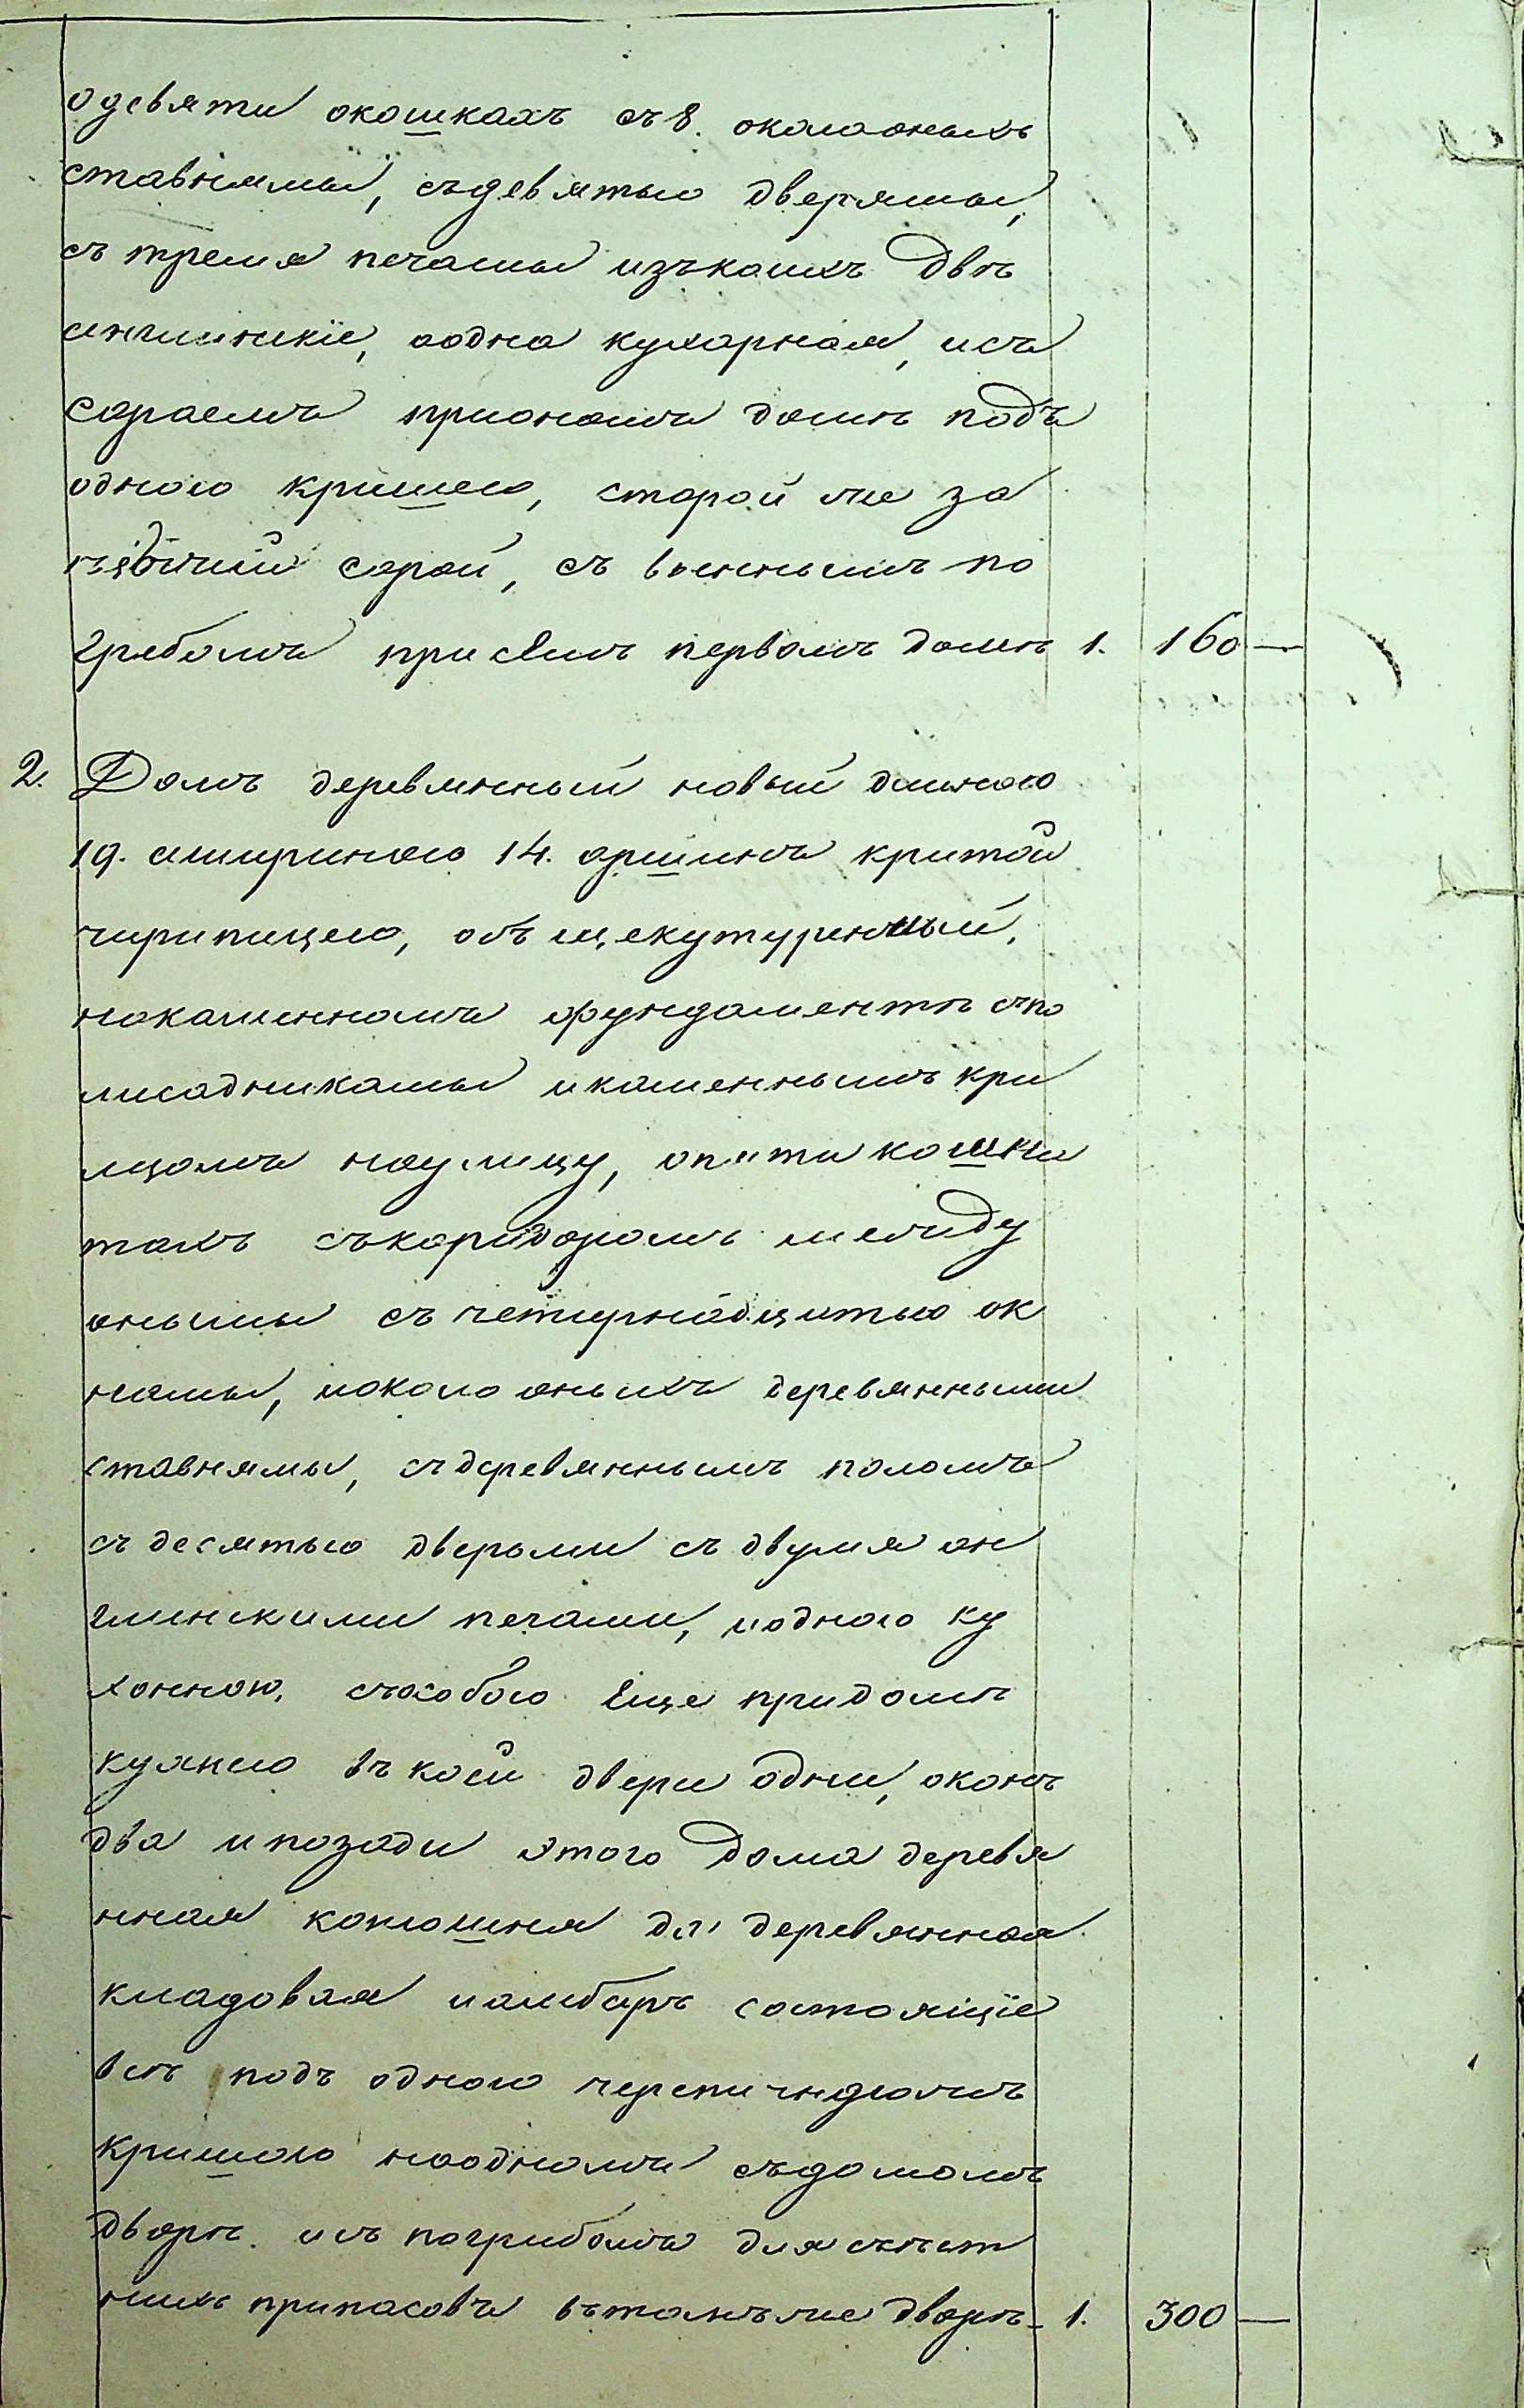 одевяти окошкахъ съ 8. околооныхъ
ставнямы, съдевятью дверямы,
съ тремя печамы изъкоихъ двѣ
англинскіе, аодна кухарная, исъ
сараемъ приономъ домѣ подъ
одною кришею, старой же за
ѣзджий сарай, съ виннымъ по
гребомъ присемъ первомъ домѣ 1. 160 —
2. Домъ деревянный новый длиною
19. ашириною 14. аршинъ критой
чирипицею, объщекутуренный,
накаменномъ фундаментѣ спо
лисадникамы икаменнымъ кри
лцомъ наулицу, опяти комна
тахъ съкоридоромъ между
онымы съ четирнадцитью ок
намы, иоколо оныхъ деревянными
ставнямы, съдеревянымъ поломъ
съ десятью дверьми съ двумя ан
глинскими печами, иодною ку
хонною, съособою еще придомѣ
кухнею въ коей двери одни, оконъ
два ипозади этого дома деревя
нная конюшня да деревянная
кладовая иамбаръ состоящіе
всѣ подъ одною
кришою наодномъ съдомомъ
дворѣ. исъ погрибомъ для сьест
нихъ припасовъ втомъже дворѣ. 1. 300 —